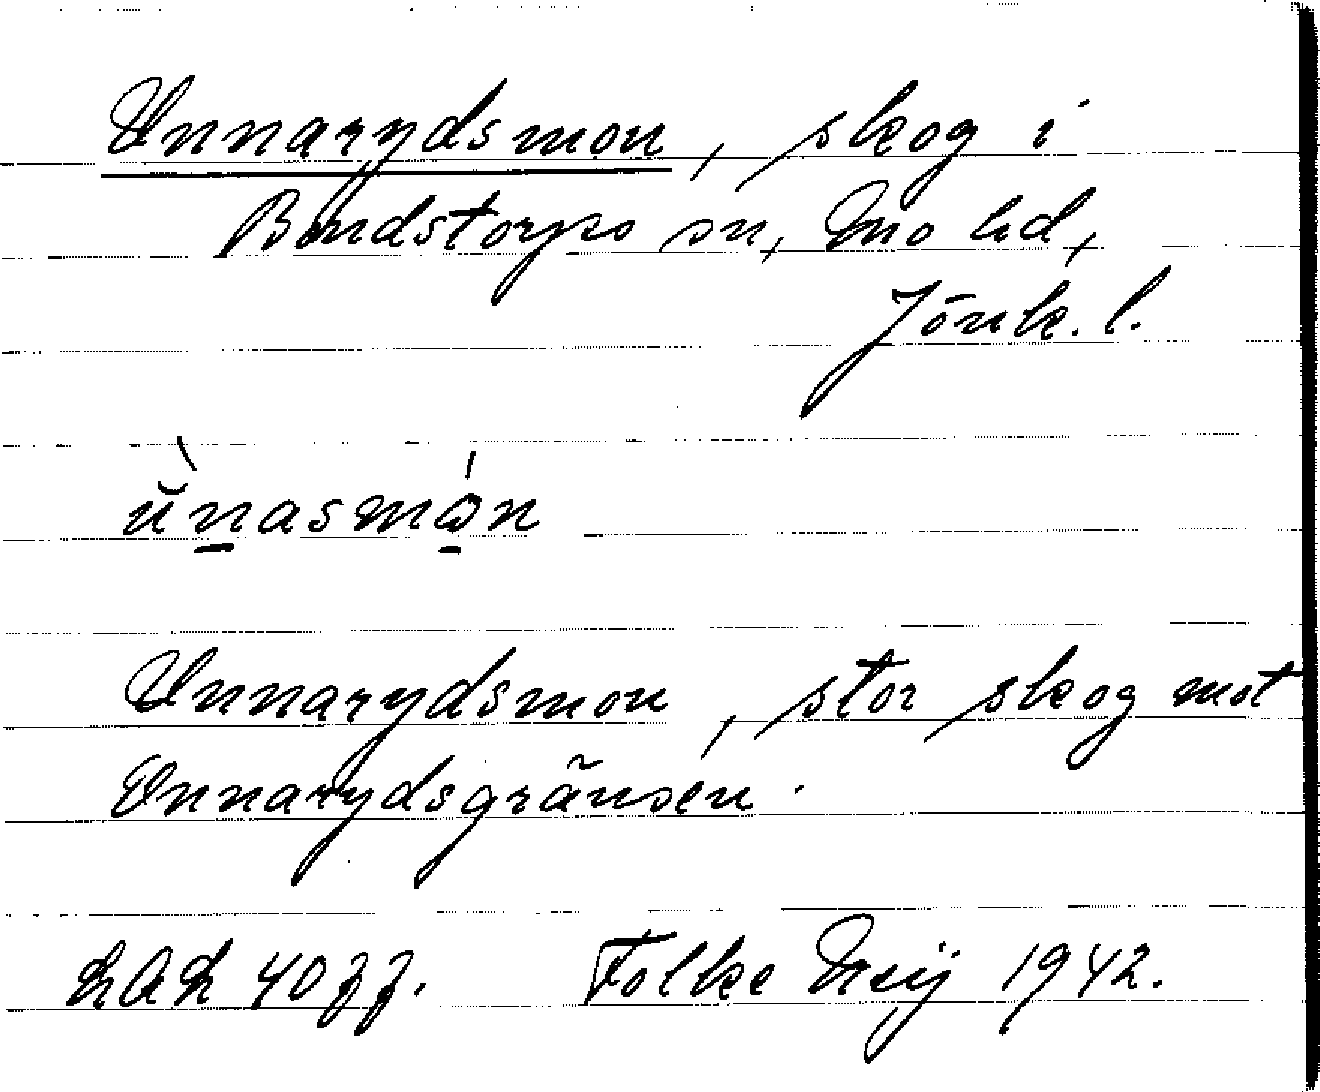 Unnarydsmon, skog i
Bondstorps sn, Mo hd,
Jönk. l.
ŭ̀nasmɷ́n
Unnarydsmon, stor skog mot
Onnarydsgränsen.
40ff. Folke 1942.